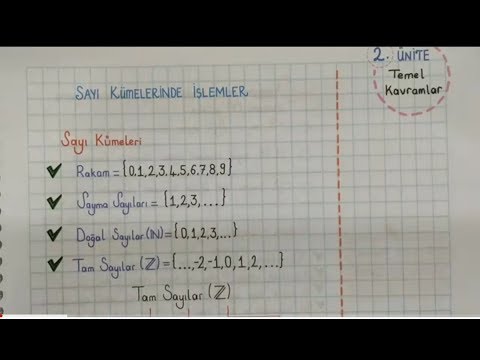 2. ÜNİTE
Temel
Kavramlar
SAYI KÜMELERİNDE İŞLEMLER
Sayı Kümeleri
Rakam = {0,1,2,3,4,5,6,7,8,9}
Sayma Sayıları = {1,2,3,...}
Doğal Sayılar (ℕ) = {0,1,2,3,...}
Tam Sayılar (ℤ) = {...,-2,-1,0,1,2,...}
Tam Sayılar (ℤ)